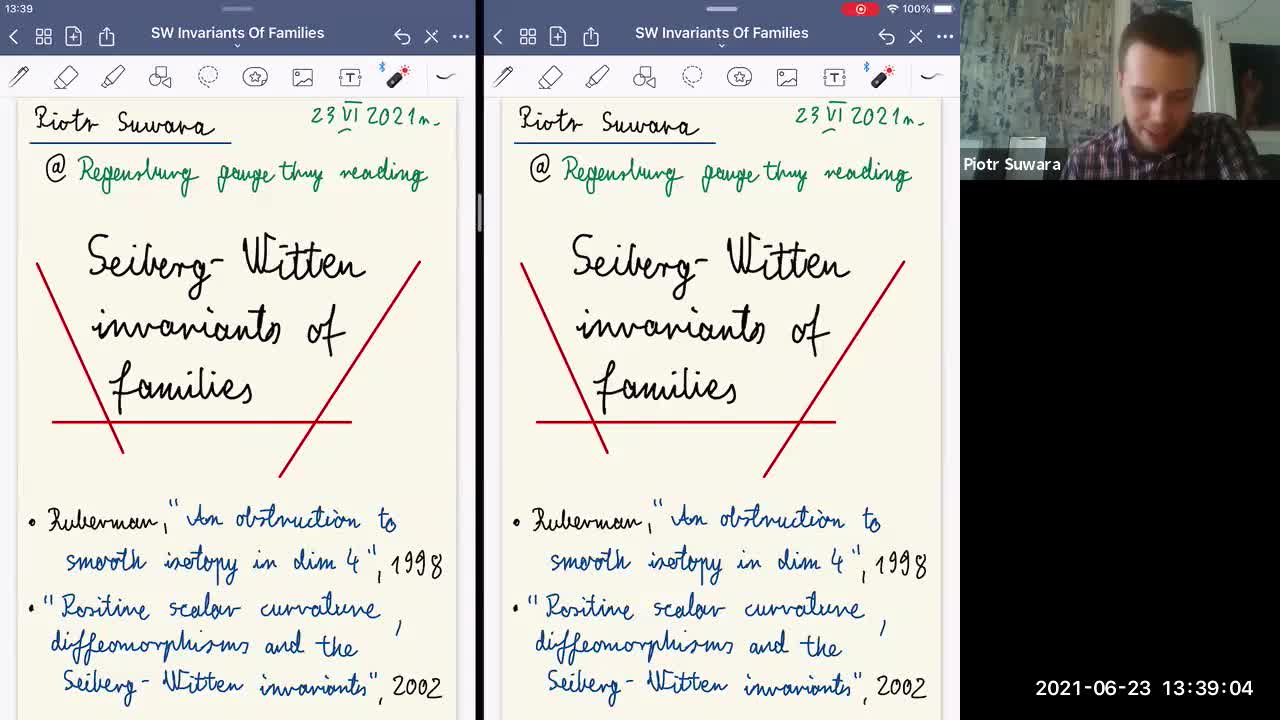 13:39
100%
SW Invariants Of Families
SW Invariants Of Families
Piotr Suwara
23 VI 2021 r.
@ Regensburg gauge thry reading
Seiberg-Witten
invariants of
families
• Ruberman, "An obstruction to
smooth isotopy in dim 4", 1998
• "Positive scalar curvature,
diffeomorphisms and the
Seiberg-Witten invariants", 2002
Piotr Suwara
23 VI 2021 r.
@ Regensburg gauge thry reading
Seiberg-Witten
invariants of
families
• Ruberman, "An obstruction to
smooth isotopy in dim 4", 1998
• "Positive scalar curvature,
diffeomorphisms and the
Seiberg-Witten invariants", 2002
Piotr Suwara
2021-06-23 13:39:04